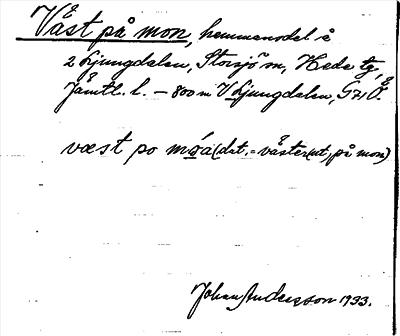 Väst på mon, hemmansdel i
2 Ljungdalen, Storsjö sn, Hede tg,
Jämtl. l. – 800 m V Ljungdalen, G 21 Ö.
væst po mo̠á (dat. = väster(ut) på mon)
Johan Andersson 1933.